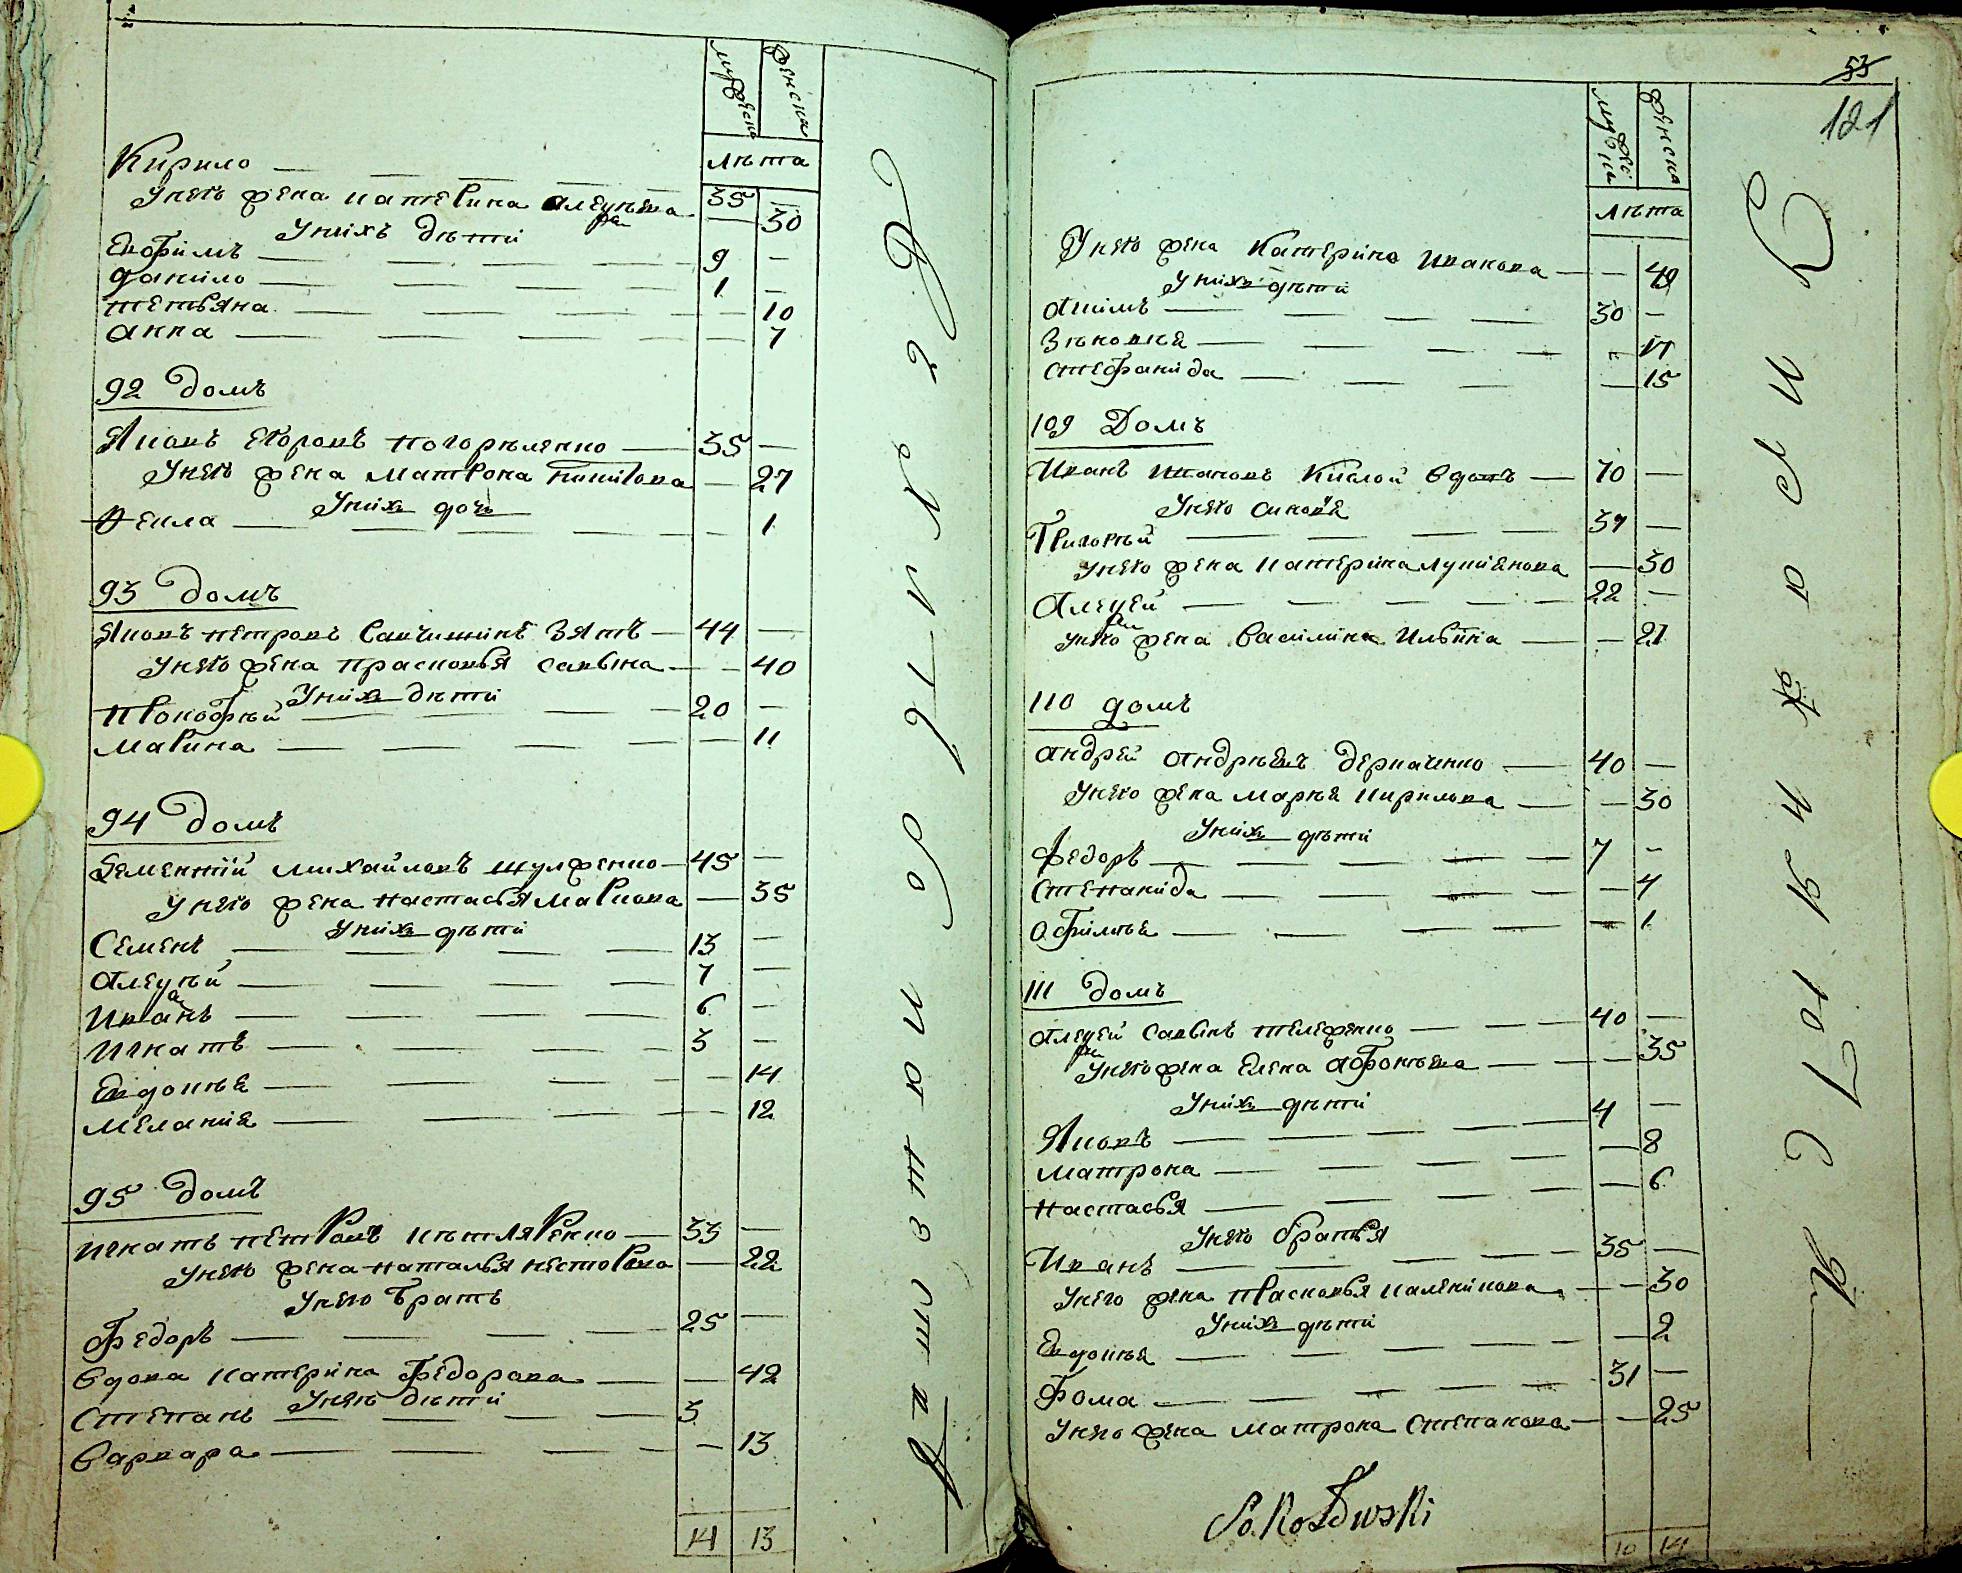 мужеск женска
лѣта
Кирило 35 —
Унего жена Катерина Алеѯѣева — 30
Уних дѣти
Евфимъ 9 —
Данило 1 —
Тетьяна — 10
Анна — 7
92 Домъ
Яковъ Егоровъ Погорѣленко 35 —
Унего жена Матрона — 27
Уних дочь
Ѳекла — 1
93 Домъ
Яковъ Петровъ Зять 44 —
Унего жена Прасковья Савына — 40
Уних дѣти
Прокофѣй 20 —
Марина — 11
94 Домъ
Сементій Михайловъ Шулженко 45 —
Унего жена Настасья Маркова — 35
Уних дѣти
Семенъ 13 —
Алеѯѣй 7 —
Иванъ 6 —
Игнатъ 3 —
Евдокѣя — 14
Меланія — 12
95 Домъ
Игнатъ Петровъ Кѣтляренко 33 —
Унего жена Наталья Нестерова — 22
Унего братъ
Федоръ 25 —
Вдова Катерина Федорова — 42
Унеѣ дѣти
Степанъ 3
Варвара — 13
14 13
53
121
мужески женска
лѣта
Унего жена Катерина Иванова — 49
Уних дѣти
Акимъ 30 —
Зѣновия — 17
Стефанида — 15
109 Домъ
Иванъ Ивановъ Кислой вдовъ 70 —
Унего синовя
Григорѣй 37 —
Унего жена Катерина Лукиянова — 30
Алеѯей 22 —
Унего жена Василина Ильина — 21
110 Домъ
Андрей Андрѣевъ Деркаченко 40 —
Унего жена Марья Кирилова — 30
Уних дѣти
Федоръ 7 —
Степанида — 4
Офимѣя — 1
111 Домъ
Алеѯей Савынъ Тележенко 40 —
Унего жена Елена Афонѣева — 35
Уних дѣти
Яковъ 4 —
Матрона — 8
Настасья — 6
Унего братья
Иванъ 35 —
Унего жена Прасковья Каленикова — 30
Уних дѣти
Евдокѣя — 2
Фома 31 —
Унего жена Матрона Степанова — 25
Sokołowski
10 14